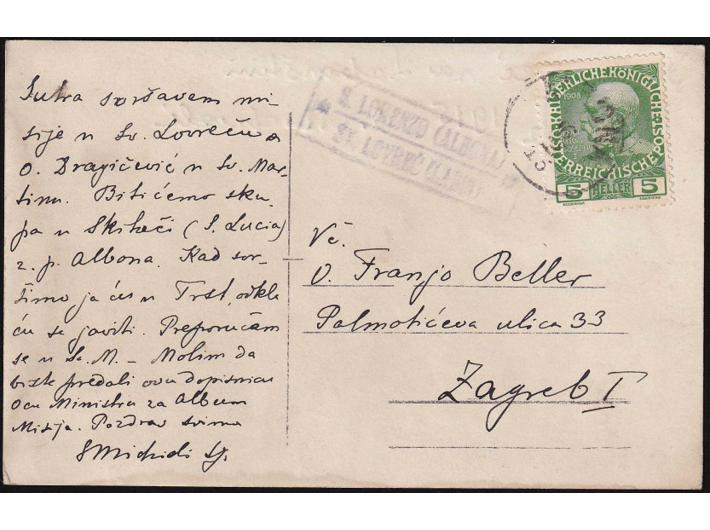 Sutra svršavam mi-
sije u Sv. Lovreču a
O. Dragičević u Sv. Mar-
tinu. Bit ćemo sku-
pa u Skitači (S. Lucia)
z. p. Albona. Kad svr-
šimo ja ću u Trst, odkle
ću se javiti. Preporučam
se u Sv. M. — Molim da
biste predali ovu dopisnicu
Ocu Ministru za Album
Misija. Pozdrav svima
S. LORENZO (ALBONA)
SV. LOVREČ (LABIN)
KAISERLICHE KÖNIGLICHE
ÖSTERREICHISCHE POST
1908
5 HELLER 5
Vč.
O. Franjo Beller
Palmotićeva ulica 33
Zagreb I